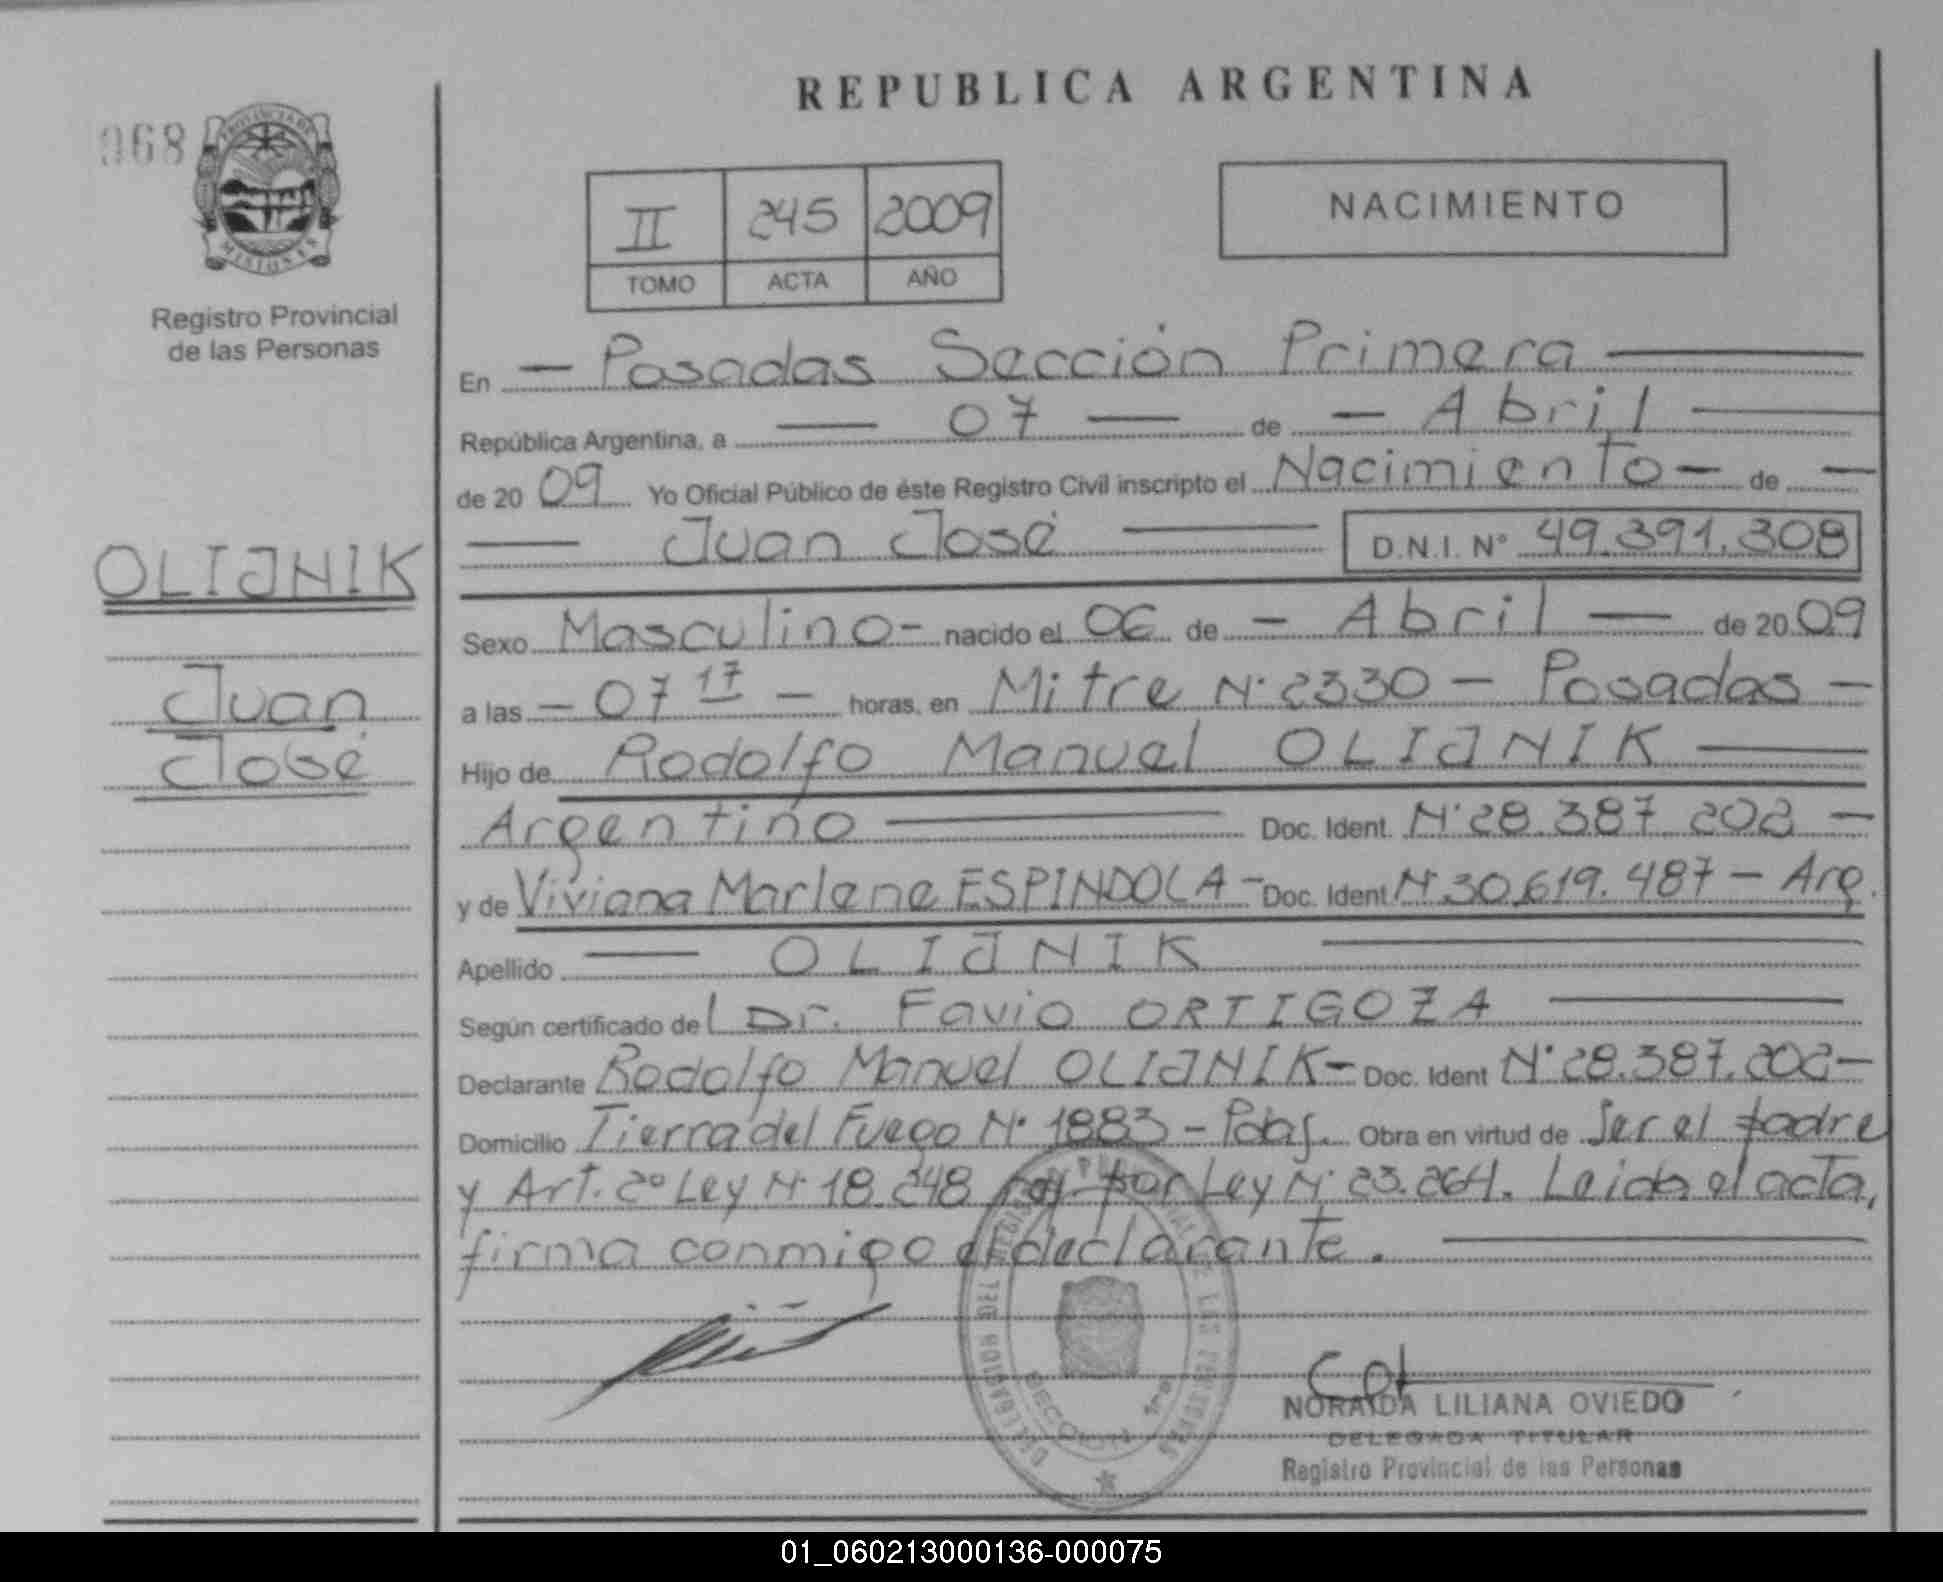 REPUBLICA ARGENTINA
068
PROVINCIA DE
MISIONES
Registro Provincial
de las Personas
II 245 2009
TOMO ACTA AÑO
NACIMIENTO
En — Posadas Sección Primera —
República Argentina, a — 07 — de — Abril —
de 20 09 Yo Oficial Público de éste Registro Civil inscripto el Nacimiento — de —
— Juan José — D.N.I. N° 49.391.308
OLIJNIK
Juan
José
Sexo Masculino - nacido el 06 de — Abril — de 20 09
a las — 07 17 — horas, en Mitre N° 2330 — Posadas —
Hijo de Rodolfo Manuel OLIJNIK —
Argentino — Doc. Ident. N° 28.387.202 —
y de Viviana Marlene ESPINDOLA - Doc. Ident N° 30.619.487 — Arg.
Apellido — OLIJNIK —
Según certificado del Dr. Favio ORTIGOZA —
Declarante Rodolfo Manuel OLIJNIK - Doc. Ident N° 28.387.202 —
Domicilio Tierra del Fuego N° 1883 - Pdas. Obra en virtud de Ser el padre
y Art. 2° Ley N° 18.248 por Ley N° 23.264. Leida el acta,
firma conmigo el declarante. —
NORAIDA LILIANA OVIEDO
DELEGADA TITULAR
Registro Provincial de las Personas
01_060213000136-000075